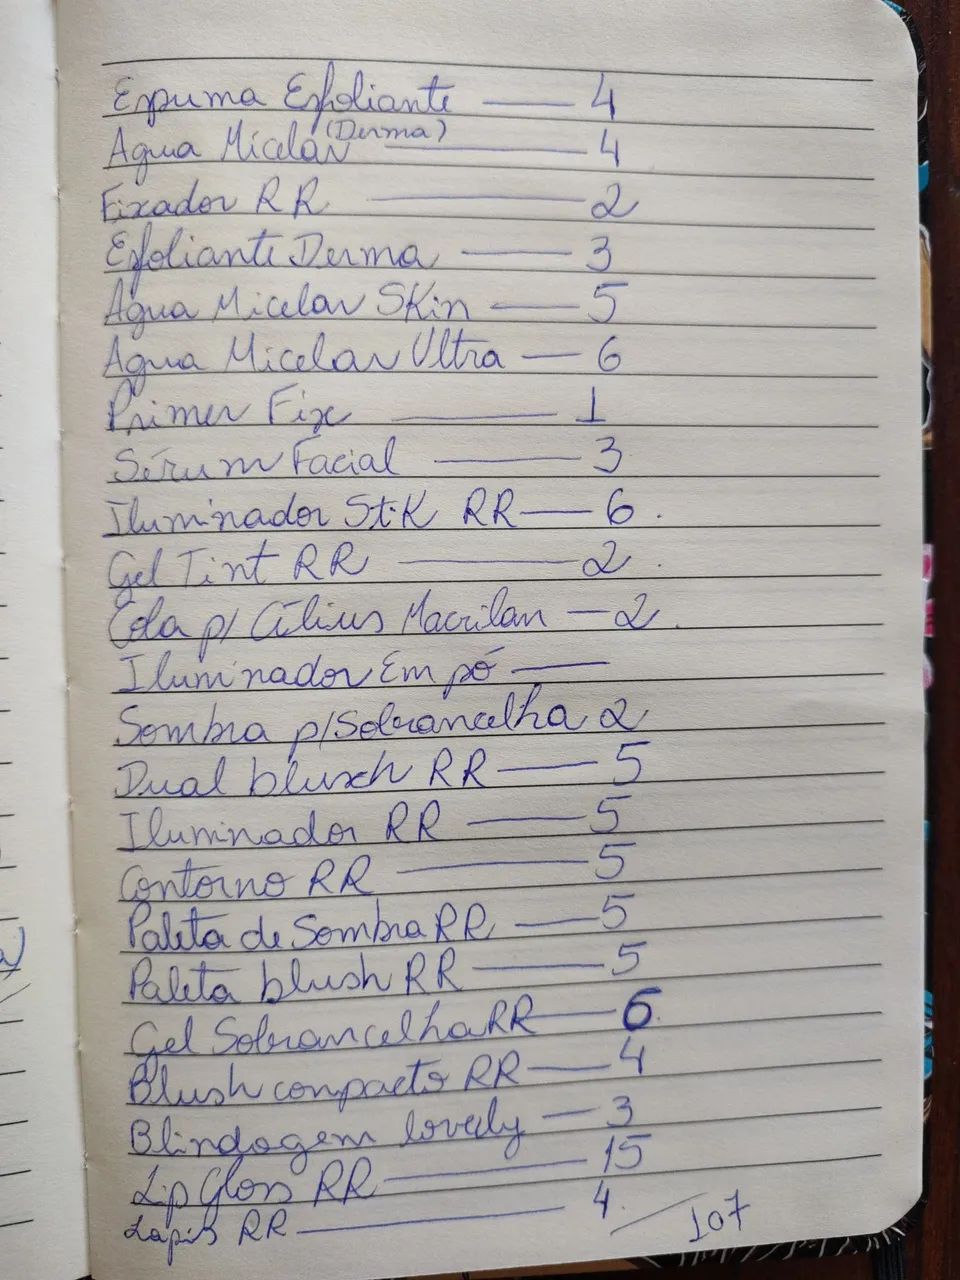 Espuma Esfoliante — 4
Agua Micelar (Derma) — 4
Fixador RR — 2
Esfoliante Derma — 3
Agua Micelar SKin — 5
Agua Micelar Ultra — 6
Primer Fix — 1
Sérum Facial — 3
Iluminador Stik RR — 6.
Gel Tint RR — 2.
Cola p/ Cílius Macrilan — 2.
Iluminador Em pó —
Sombra p/Sobrancelha 2
Dual blush RR — 5
Iluminador RR — 5
Contorno RR — 5
Paleta de Sombra RR — 5
Paleta blush RR — 5
Gel Sobrancelha RR — 6.
Blush compacto RR — 4
Blindagem lovely — 3
Lip Gloss RR — 15
Lapis RR — 4. / 107